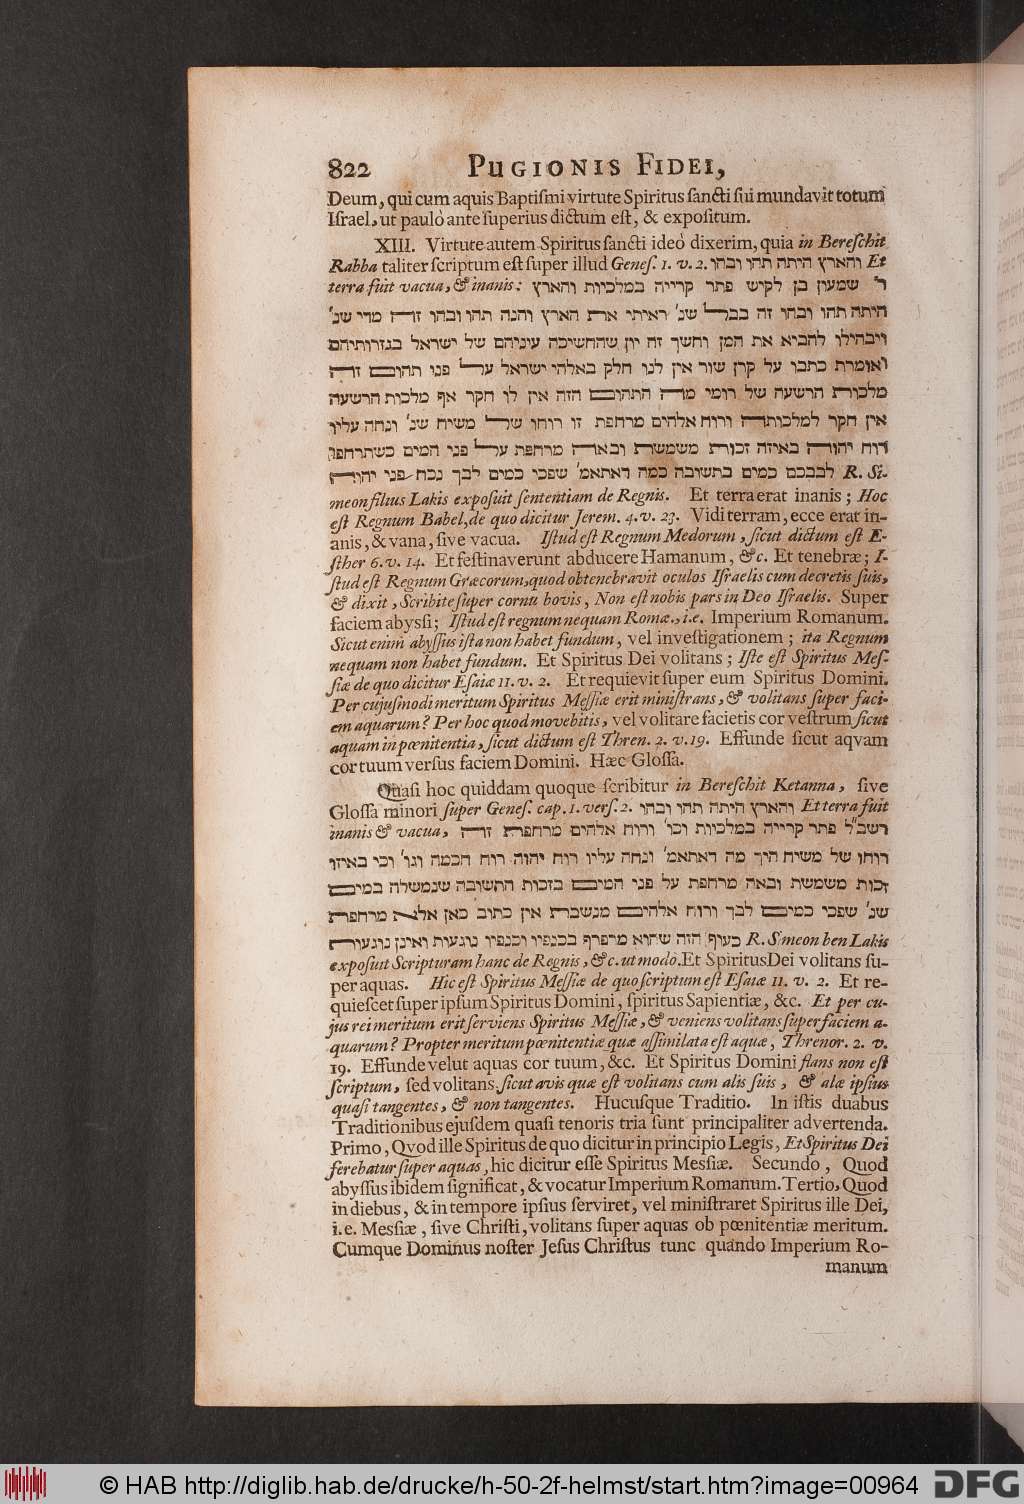 822 PUGIONIS FIDEI,
Deum, qui cum aquis Baptiſmi virtute Spiritus ſancti ſui mundavit totum
Iſrael, ut paulò ante ſuperius dictum eſt, & expoſitum.
XIII. Virtute autem Spiritus ſancti ideò dixerim, quia in Bereſchit
Rabba taliter ſcriptum eſt ſuper illud Geneſ. 1. v. 2. והארץ היתה תהו ובהו Et
terra fuit vacua, & inanis: ר' שמעון בן לקיש פתר קרייה במלכיות והארץ
היתה תהו ובהו זה בבל שנ' ראיתי את הארץ והנה תהו ובהו זה מדי שנ'
ויבהילו להביא את המן וחשך זה יון שהחשיכה עיניהם של ישראל בגזרותיהם
ואומרת כתבו על קרן שור אין לנו חלק באלהי ישראל על פני תהום זה
מלכות הרשעה של רומי מה התהום הזה אין לו חקר אף מלכות הרשעה
אין חקר למלכותה ורוח אלהים מרחפת זו רוחו של משיח שנ' ונחה עליו
רוח יהוה באיזה זכות משמשת ובאה מרחפת על פני המים כשתרחפו
לבבכם כמים בתשובה כמה דאתאמ' שפכי כמים לבך נכח פני יהוה R. Si-
meon filius Lakis expoſuit ſententiam de Regnis. Et terra erat inanis; Hoc
eſt Regnum Babel, de quo dicitur Jerem. 4. v. 23. Vidi terram, ecce erat in-
anis, & vana, ſive vacua. Iſtud eſt Regnum Medorum, ſicut dictum eſt E-
ſther 6. v. 14. Et feſtinaverunt abducere Hamanum, &c. Et tenebræ; I-
ſtud eſt Regnum Græcorum, quod obtenebravit oculos Iſraelis cum decretis ſuis,
& dixit, Scribite ſuper cornu bovis, Non eſt nobis pars in Deo Iſraelis. Super
faciem abyſſi; Iſtud eſt regnum nequam Romæ, i.e. Imperium Romanum.
Sicut enim abyſſus iſta non habet fundum, vel inveſtigationem; ita Regnum
nequam non habet fundum. Et Spiritus Dei volitans; Iſte eſt Spiritus Meſ-
ſiæ de quo dicitur Eſaiæ 11. v. 2. Et requievit ſuper eum Spiritus Domini.
Per cujuſmodi meritum Spiritus Meſſiæ erit miniſtrans, & volitans ſuper faci-
em aquarum? Per hoc quod movebitis, vel volitare facietis cor veſtrum ſicut
aquam in pœnitentia, ſicut dictum eſt Thren. 2. v. 19. Effunde ſicut aqvam
cor tuum verſus faciem Domini. Hæc Gloſſa.
Quaſi hoc quiddam quoque ſcribitur in Bereſchit Ketanna, ſive
Gloſſa minori ſuper Geneſ. cap. 1. verſ. 2. והארץ היתה תהו ובהו Et terra fuit
inanis & vacua, רשב"ל פתר קרייה במלכיות וכו' ורוח אלהים מרחפת זה
רוחו של משיח היך מה דאתאמ' ונחה עליו רוח יהוה רוח חכמה וגו' וכי באיזו
זכות משמשת ובאה מרחפת על פני המים בזכות התשובה שנמשלה במים
שנ' שפכי כמים לבך ורוח אלהים מנשבת אין כתוב כאן אלא מרחפת
כעוף הזה שהוא מרפרף בכנפיו וכנפיו נוגעות ואינן נוגעות R. Simeon ben Lakis
expoſuit Scripturam hanc de Regnis, &c. ut modò. Et Spiritus Dei volitans ſu-
per aquas. Hic eſt Spiritus Meſſiæ de quo ſcriptum eſt Eſaiæ 11. v. 2. Et re-
quieſcet ſuper ipſum Spiritus Domini, ſpiritus Sapientiæ, &c. Et per cu-
jus rei meritum erit ſerviens Spiritus Meſſiæ, & veniens volitans ſuper faciem a-
quarum? Propter meritum pœnitentiæ quæ aſſimilata eſt aquæ, Threnor. 2. v.
19. Effunde velut aquas cor tuum, &c. Et Spiritus Domini flans non eſt
ſcriptum, ſed volitans, ſicut avis quæ eſt volitans cum alis ſuis, & alæ ipſius
quaſi tangentes, & non tangentes. Hucuſque Traditio. In iſtis duabus
Traditionibus ejuſdem quaſi tenoris tria ſunt principaliter advertenda.
Primo, Qvod ille Spiritus de quo dicitur in principio Legis, Et Spiritus Dei
ferebatur ſuper aquas, hic dicitur eſſe Spiritus Meſſiæ. Secundo, Quod
abyſſus ibidem ſignificat, & vocatur Imperium Romanum. Tertio, Quod
in diebus, & in tempore ipſius ſerviret, vel miniſtraret Spiritus ille Dei,
i.e. Meſſiæ, ſive Chriſti, volitans ſuper aquas ob pœnitentiæ meritum.
Cumque Dominus noſter Jeſus Chriſtus tunc quando Imperium Ro-
manum
© HAB http://diglib.hab.de/drucke/h-50-2f-helmst/start.htm?image=00964 DFG